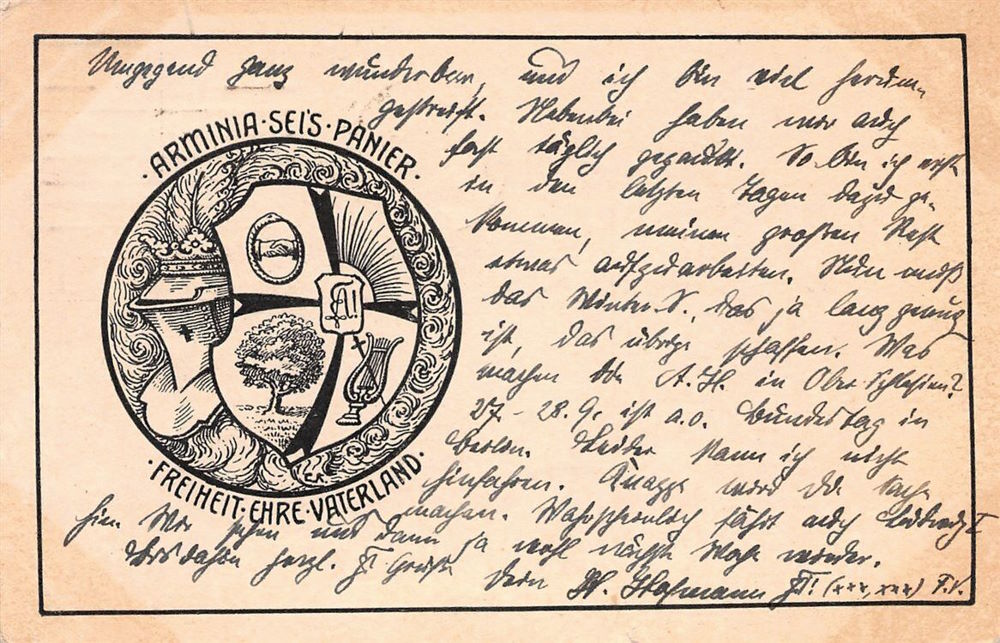 Umgegend ganz wunderbar, und ich bin viel herum-
gestreift. Nebenbei haben wir auch
fast täglich gepaukt. So bin ich erst
in den letzten Tagen dazu ge-
kommen, meinen großen Rest
etwas aufzuarbeiten. Nun muß
das Winter S., das ja lang genug
ist, das übrige schaffen. Was
machen die A.H. in Ober-Schlesien?
27 - 28.9. ist a.o. Bundestag in
Berlin. Leider kann ich nicht
hinfahren. wird die Sache
machen. Wahrscheinlich fährt auch
hin. Wir sehen uns dann ja wohl nächste Woche wieder.
Bis dahin herzl. Grüße Dein H. Hofmann (xxx, xxx) F.V.
·ARMINIA·SEI'S·PANIER·
·FREIHEIT·EHRE·VATERLAND·